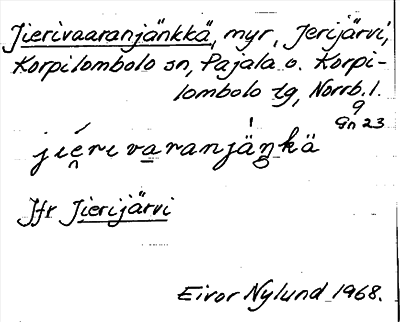 Jierivaaranjänkkä, myr, Jerijärvi,
Korpilombolo sn, Pajala o. Korpi-
lombolo tg, Norrb. l.
9
Gn 23
jíe̯riva̲ranjä́ŋkä
Jfr Jierijärvi
Eivor Nylund 1968.